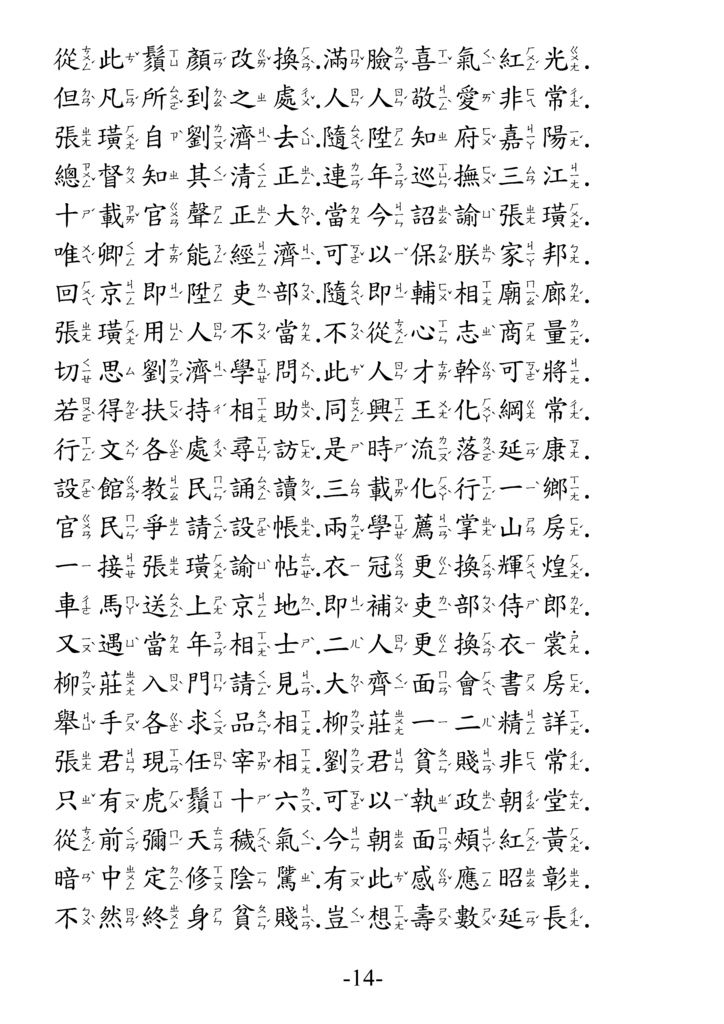 從此鬚顏改換.滿臉喜氣紅光.
但凡所到之處.人人敬愛非常.
張璜自劉濟去.隨陞知府嘉陽.
總督知其清正.連年巡撫三江.
十載官聲正大.當今詔諭張璜.
唯卿才能經濟.可以保朕家邦.
回京即陞吏部.隨即輔相廟廊.
張璜用人不當.不從心志商量.
切思劉濟學問.此人才幹可將.
若得扶持相助.同興王化綱常.
行文各處尋訪.是時流落延康.
設館教民誦讀.三載化行一鄉.
官民爭請設帳.兩學薦掌山房.
一接張璜諭帖.衣冠更換輝煌.
車馬送上京地.即補吏部侍郎.
又遇當年相士.二人更換衣裳.
柳莊入門請見.大齊面會書房.
舉手各求品相.柳莊一二精詳.
張君現任宰相.劉君貧賤非常.
只有虎鬚十六.可以執政朝堂.
從前彌天穢氣.今朝面頰紅黃.
暗中定修陰騭.有此感應昭彰.
不然終身貧賤.豈想壽數延長.
-14-